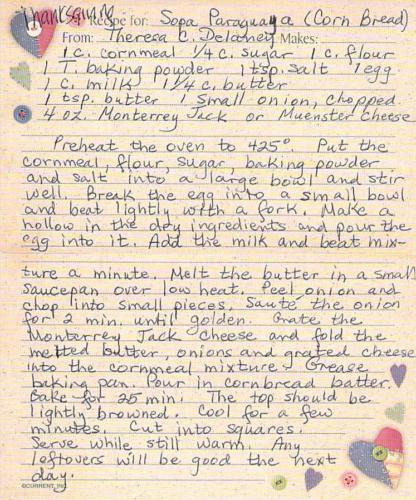 Thanksgiving
Recipe for: Sopa Paraguaya (Corn Bread)
From: Theresa C. Delaney Makes:
1 c. cornmeal 1/4 c. sugar 1 c. flour
1 T. baking powder 1 tsp. salt 1 egg
1 c. milk 1/4 c. butter
1 tsp. butter 1 small onion, chopped
4 oz. Monterrey Jack or Muenster Cheese
Preheat the oven to 425°. Put the
cornmeal, flour, sugar, baking powder
and salt into a large bowl and stir
well. Break the egg into a small bowl
and beat lightly with a fork. Make a
hollow in the dry ingredients and pour the
egg into it. Add the milk and beat mix-
ture a minute. Melt the butter in a small
saucepan over low heat. Peel onion and
chop into small pieces. Sauté the onion
for 2 min. until golden. Grate the
Monterrey Jack cheese and fold the
melted butter, onions and grated cheese
into the cornmeal mixture. Grease
baking pan. Pour in cornbread batter.
Bake for 25 min. The top should be
lightly browned. Cool for a few
minutes. Cut into squares.
Serve while still warm. Any
leftovers will be good the next
day.
©CURRENT, INC.